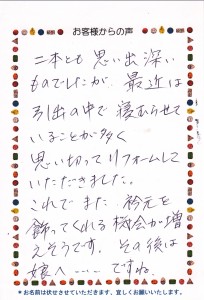 お客様からの声
二本とも思い出深い
ものでしたが、最近は
引出の中で寝むらせて
いることが多く
思い切ってリフォームして
いただきました。
これでまた、衿元を
飾ってくれる機会が増
えそうです。その後は
娘へ……ですね。
＊お名前は伏せさせていただきます。宜しくお願いいたします。